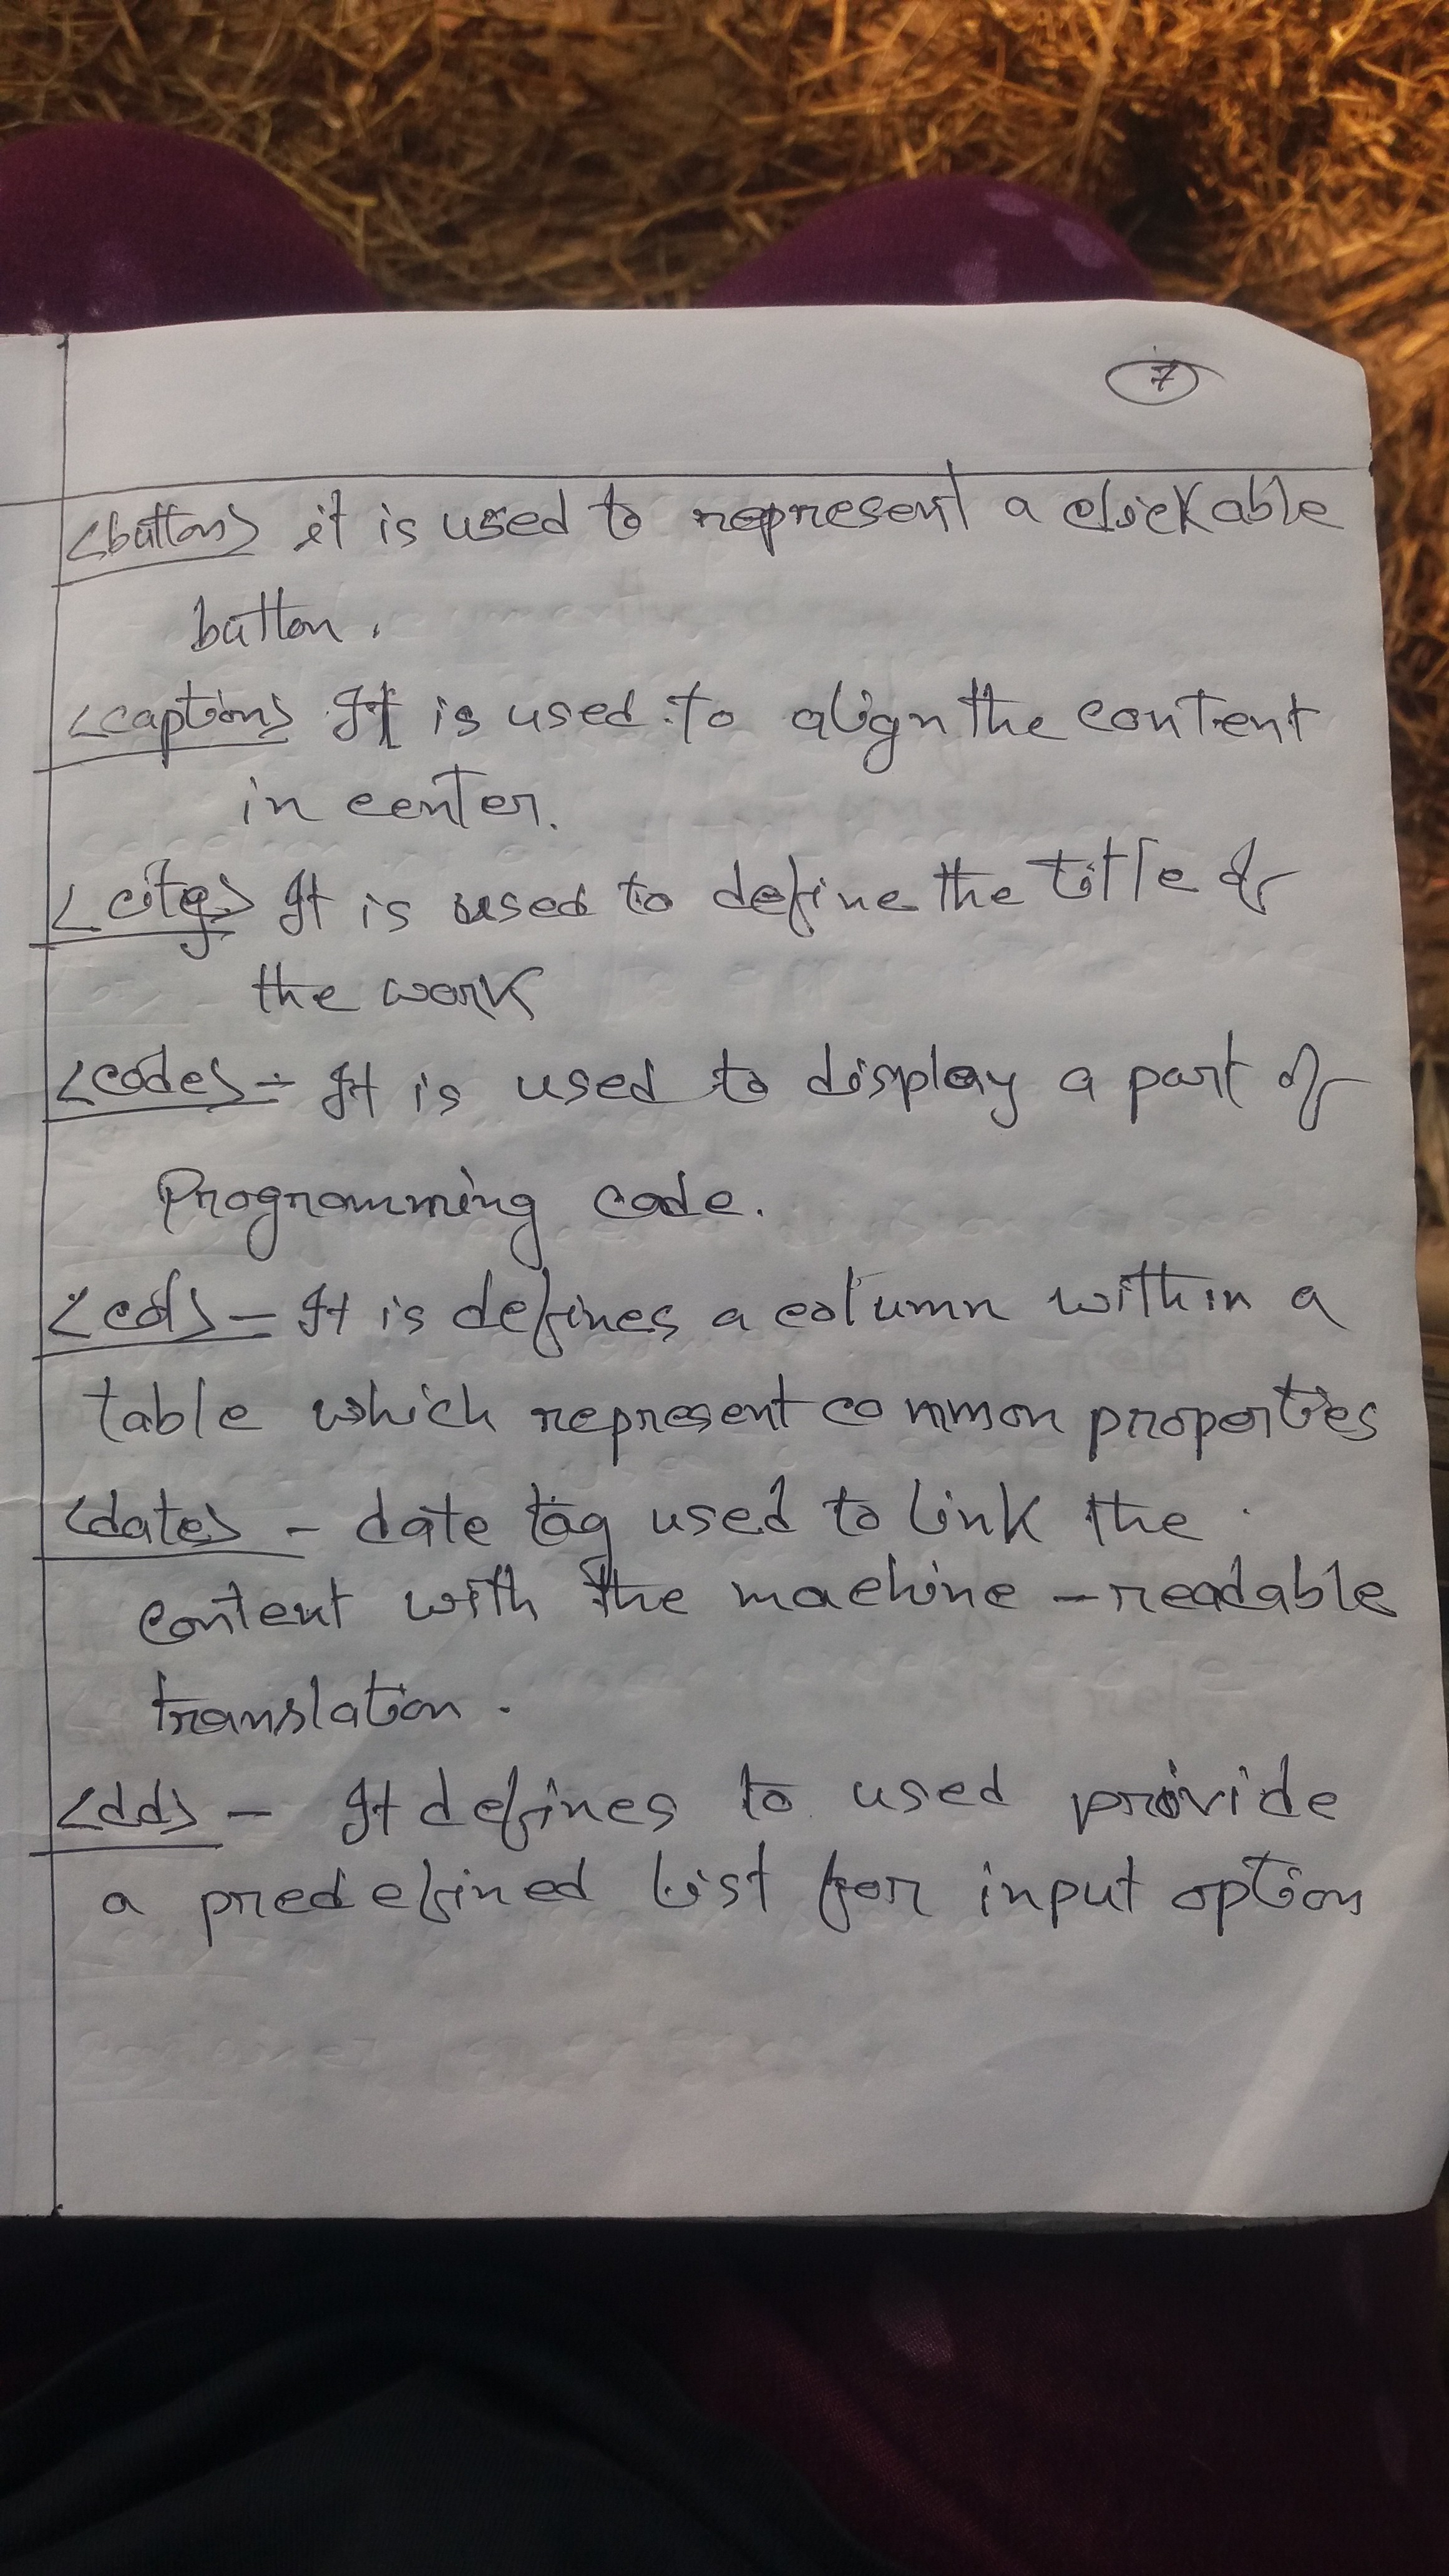 7
<button> it is used to represent a clickable
button.
<caption> It is used to align the content
in center.
<cite> It is used to define the title of
the work
<code> - It is used to display a part of
Programming code.
<col> - It is defines a column within a
table which represent common properties
<date> - date tag used to link the
content with the machine - readable
translation.
<dd> - It defines to used provide
a predefined list for input option